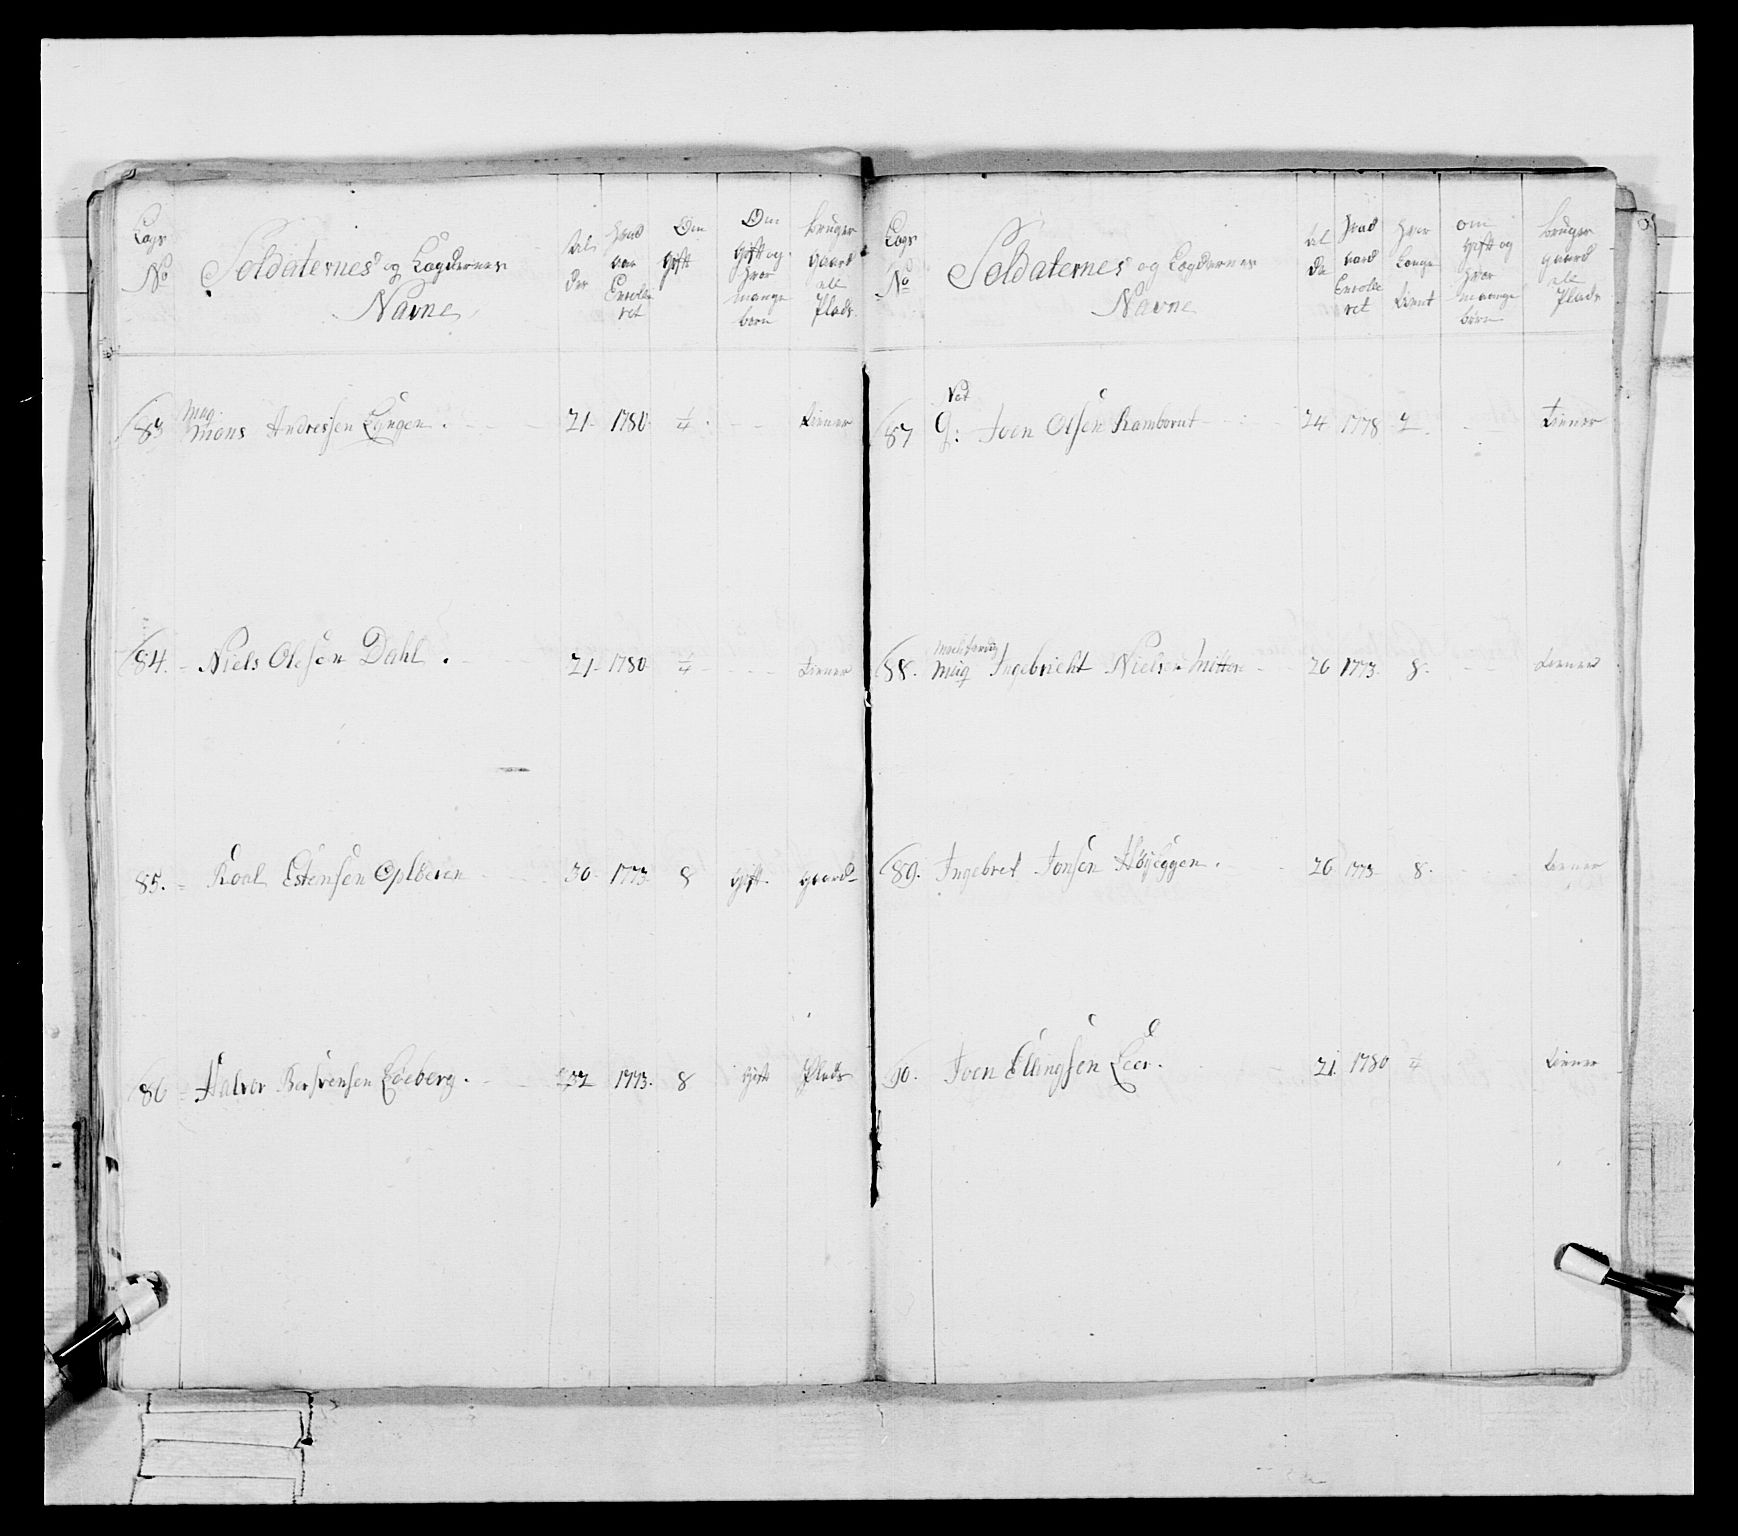 Lægs No Soldaternes og Lægdernes Navne Alder Hvad aar Enrolleret Om Gift Om Gift og Hvor mange børn bruger gaard ell Plads
83 Mons Andersen Langen 21 1780 1/4 tiener
84. Niels Olesen Dahl 21 1780 1/4 tiener
85. Roal Estensen Opløeien 30 1773 8 Gift gaard
86 Halvor Loseberg 32 1773 8 Gift Plads
Lægs No Soldaternes og Lægdernes Navne Alder Hvad aar Enrolleret Hvor Længe tient om Gift og Hvor mange børn bruger gaard ell Plads
87 Joen Olsen 24 1778 2 tiener
88. Ingebricht Nielsen 26 1773 8 tiener
89. Ingebret Jonsen Høyeggen 26 1773 8 tiener
90. Joen Ellingsen Leer 21 1780 1/4 tiener